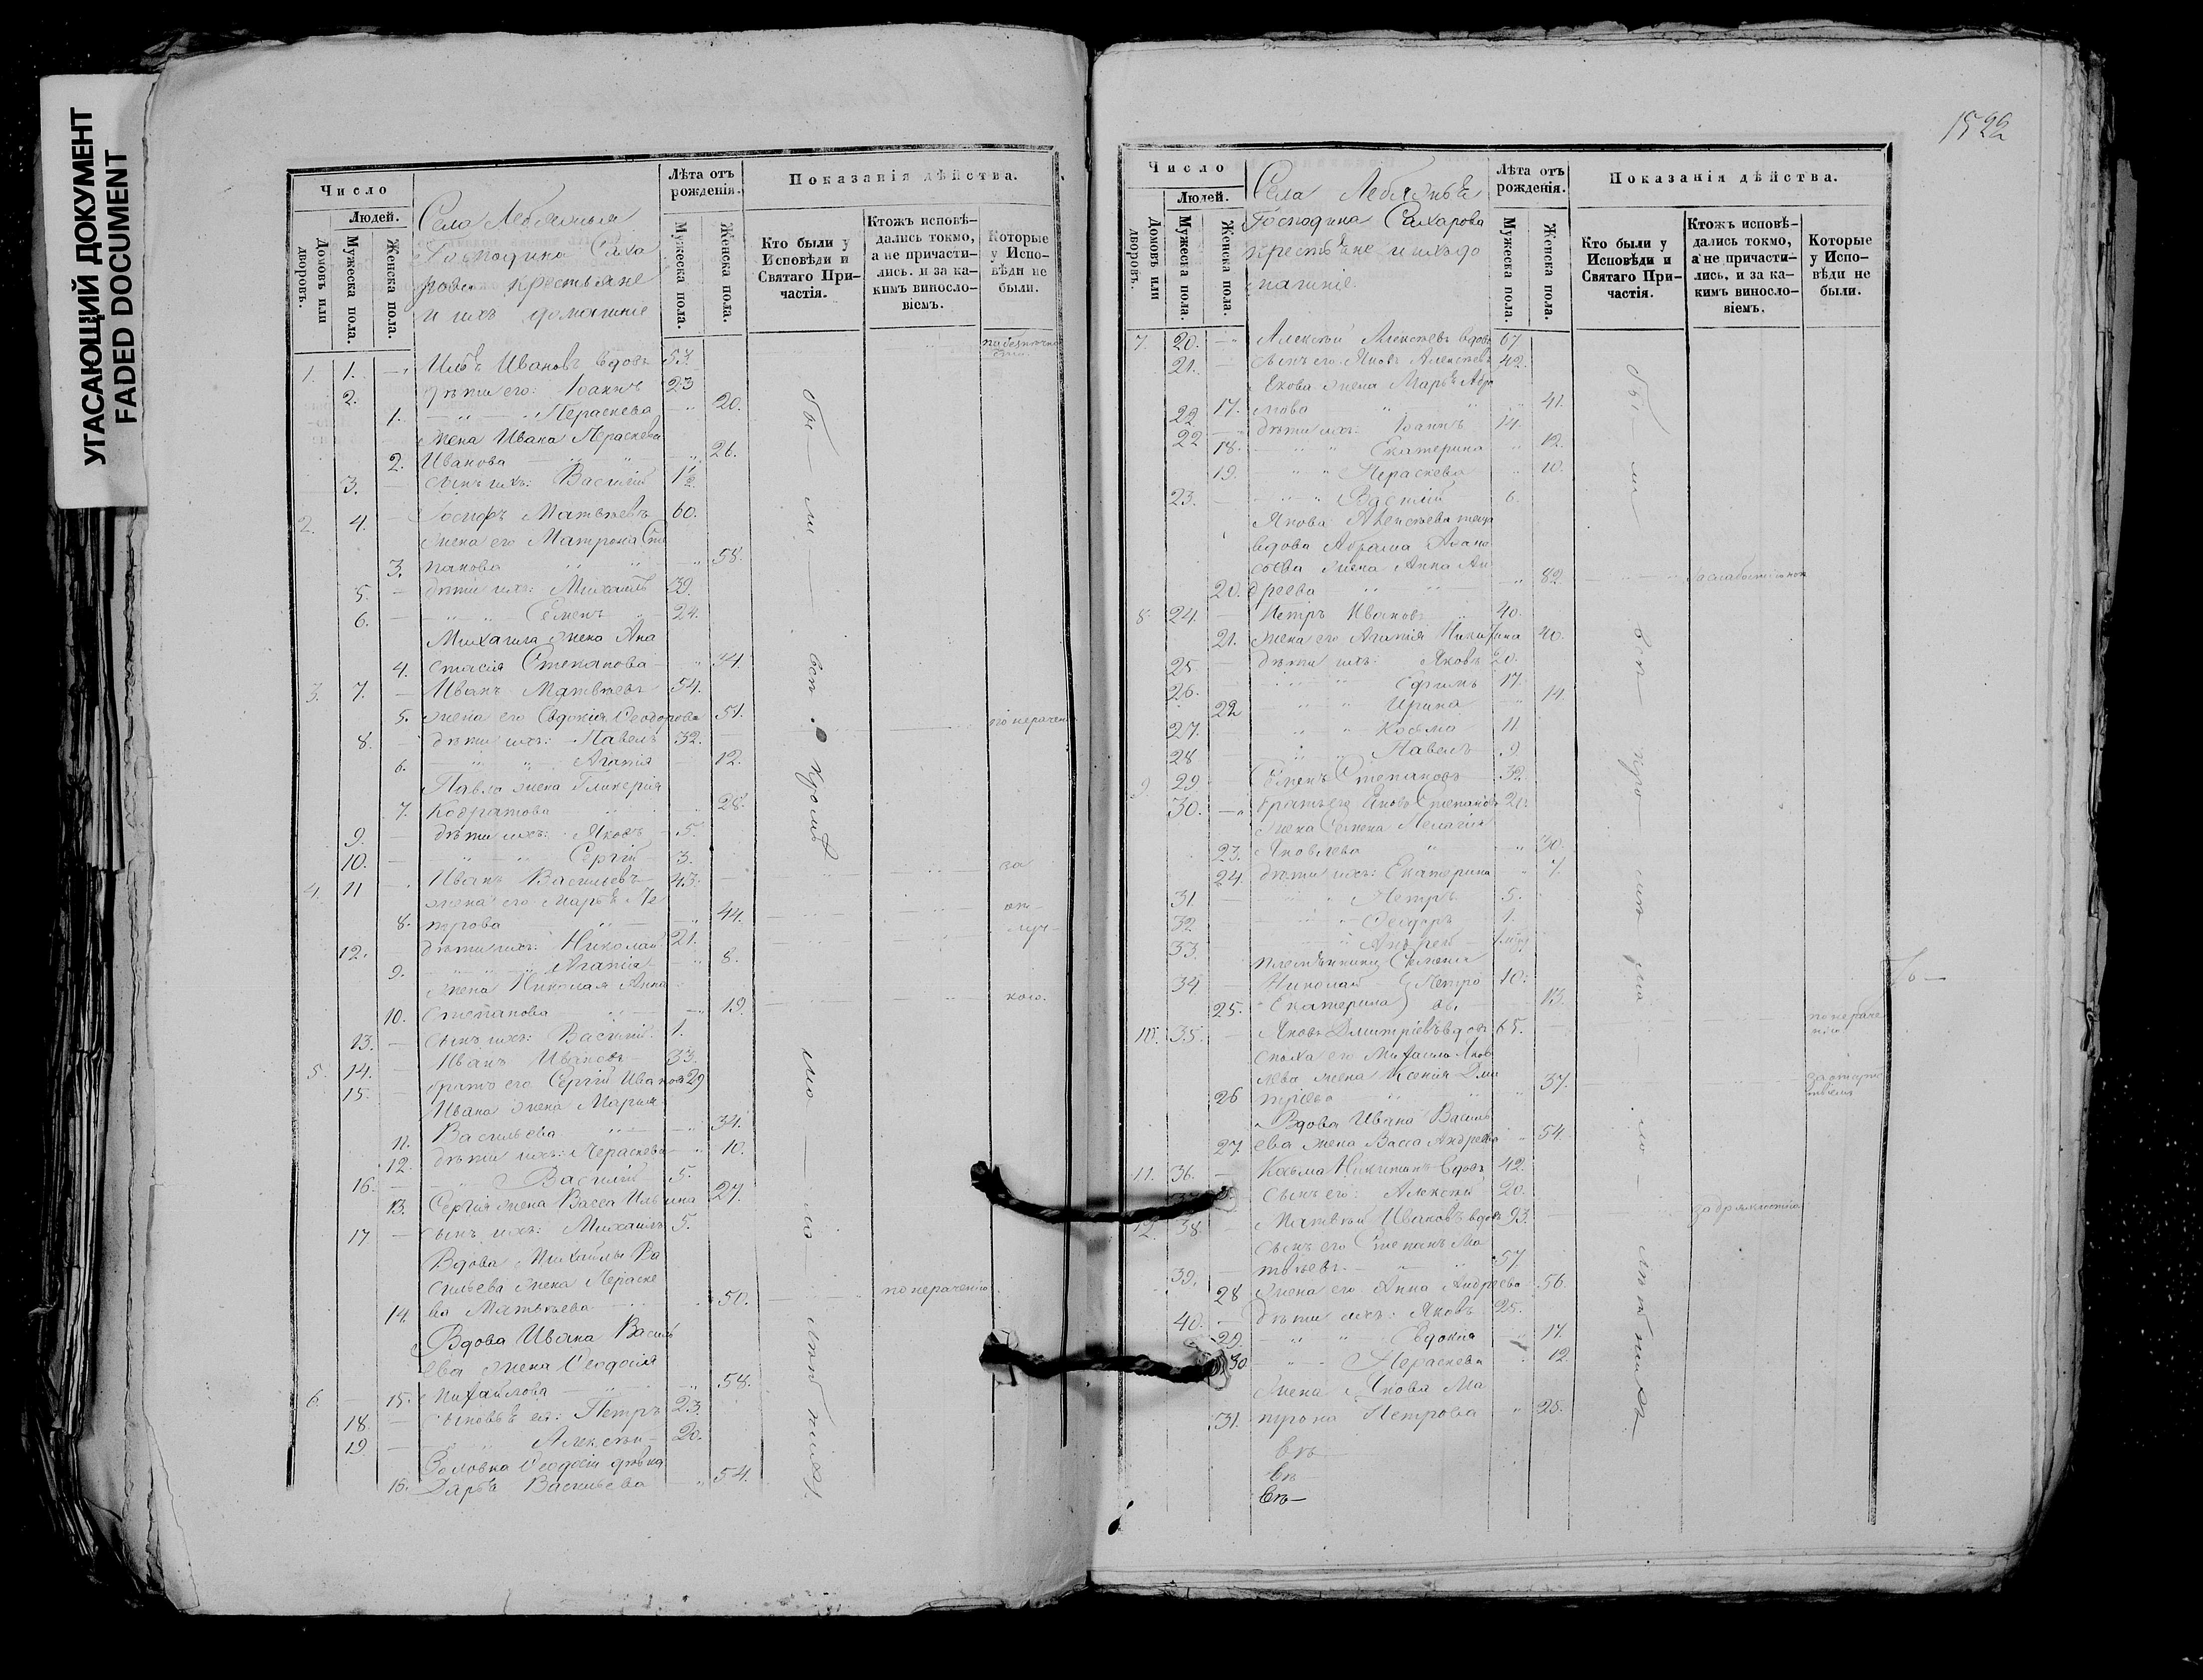 УГАСАЮЩИЙ ДОКУМЕНТ
FADED DOCUMENT
Число
Людей.
Домовъ или дворовъ.
Мужеска пола.
Женска пола.
Лѣта отъ рожденія.
Мужеска пола.
Женска пола.
Показанія дѣйства.
Кто были у Исповѣди и Святаго Причастія.
Ктожъ исповѣдались токмо, а не причастились, и за какимъ винословіемъ.
Которые у Исповѣди не были.
Села
Господина Саха
рова крестьяне
и ихъ домашніе
1. 1. Ивановъ вдовъ 53.
2. дѣти его: Іоаннъ 23
1. Параскева 20.
жена Ивана Параскева
2. Иванова 26.
3. сынъ ихъ: Василій 1½
2. 4. Іосифъ Матвѣевъ 60.
жена его Матрона Сте
3. панова 58.
5. дѣти ихъ: Михаилъ 39.
6. Семенъ 24.
Михаила жена Ана
4. стасія Степанова 34.
3. 7. Иванъ Матвѣевъ 54.
5. жена его Евдокія Ѳеодорова 51.
8. дѣти ихъ: Павелъ 32.
6. Агапія 12.
Павла жена Гликерія
7. Кодратова 28.
9. дѣти ихъ: Яковъ 5.
10. Сергій 3.
4. 11 Иванъ Васильевъ 43.
жена его Марья Пе
8. трова 44.
12. дѣти ихъ: Николай 21.
9. Агапія 8.
жена Николая Анна
10. Степанова 19.
13. сынъ ихъ: Василій 1.
5. 14. Иванъ Ивановъ 33.
15. братъ его Сергій Ивановъ 29
Ивана жена Марья
11. Васильева 34.
12. дѣти ихъ: Параскева 10.
16. Василій 5.
13. Сергія жена Васса Ильина 27.
17 сынъ ихъ: Михаилъ 5.
Вдова Михайлы Ва
сильева жена Параске
14. ва Матвѣева 50. по нераченію
Вдова Ивана Василь
ева жена Ѳеодосія
6. 15. Михайлова 58.
18. сыновья ея: Петръ 23.
19 Алексѣй 20.
Золовка Ѳеодосіи дѣвка
16. Дарья Васильева 54.
1522
Число
Людей.
Домовъ или дворовъ.
Мужеска пола.
Женска пола.
Лѣта отъ рожденія.
Мужеска пола.
Женска пола.
Показанія дѣйства.
Кто были у Исповѣди и Святаго Причастія.
Ктожъ исповѣдались токмо, а не причастились, и за какимъ винословіемъ.
Которые у Исповѣди не были.
Села
Господина Сахарова
крестьяне и ихъ до
машніе
7. 20. Алексѣй Алексѣевъ вдовъ 67.
21. сынъ его Яковъ Алексѣевъ 42.
Якова жена Марья Абра
17. мова 41.
22 дѣти ихъ: Іоаннъ 14.
22 18. Екатерина 12.
19. Параскева 10.
23. Василій 6.
Якова Алексѣева теща
вдова Абрама
жена Анна Ан
20. дреева 82.
8 24. Петръ Ивановъ 40.
21. жена его Агапія Никитина 40.
25 дѣти ихъ: Яковъ 20.
26. Ефимъ 17.
22 Ирина 14.
27. Козьма 11
28 Павелъ 9
9 29. Семенъ Степановъ 32
30. братъ его Степановъ 20.
жена Семена Пелагія
23. Яковлева 30.
24. дѣти ихъ: Екатерина 7.
31. Петръ 5.
32. Ѳеодоръ 1.
33. Андрей
племянники Семена
34 Николай Петро 10.
25. Екатерина вы 13.
10. 35. Яковъ Дмитріевъ вдовъ 65. по нераче
нію
сноха его Михаила Яков
лева жена Ксенія Дми
26 тріева 37.
Вдова Ивана Василь
27. ева жена Васса Андреева 54.
11. 36. Козьма Никитинъ вдовъ 42.
37. сынъ его: Алексѣй 20.
12. 38. Матвѣй Ивановъ вдовъ 93. за дряхлостію
сынъ его Степанъ Ма
39. твѣевъ 57.
28 жена его Анна Андреева 56.
40. дѣти ихъ: Яковъ 25.
29. Евдокія 17.
30 Параскева 12
жена Якова Ма
31. трона Петрова 25.